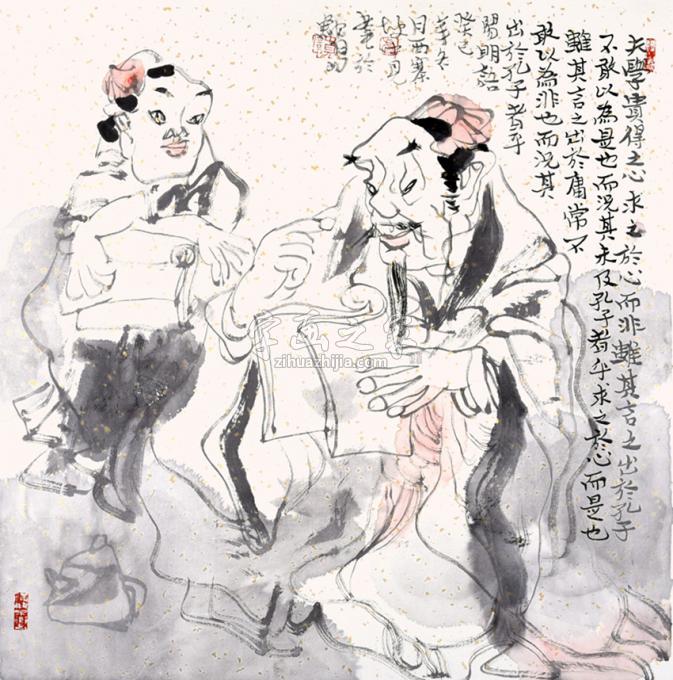 夫學貴得之心求之於心而非雖其言之出於孔子
不敢以為是也而況其未及孔子者乎求之於心而是也
雖其言之出於庸常不
敢以為非也而況其
出於孔子者乎
陽明語
癸巳
月西寨
字画之家
zihuazhijia.com